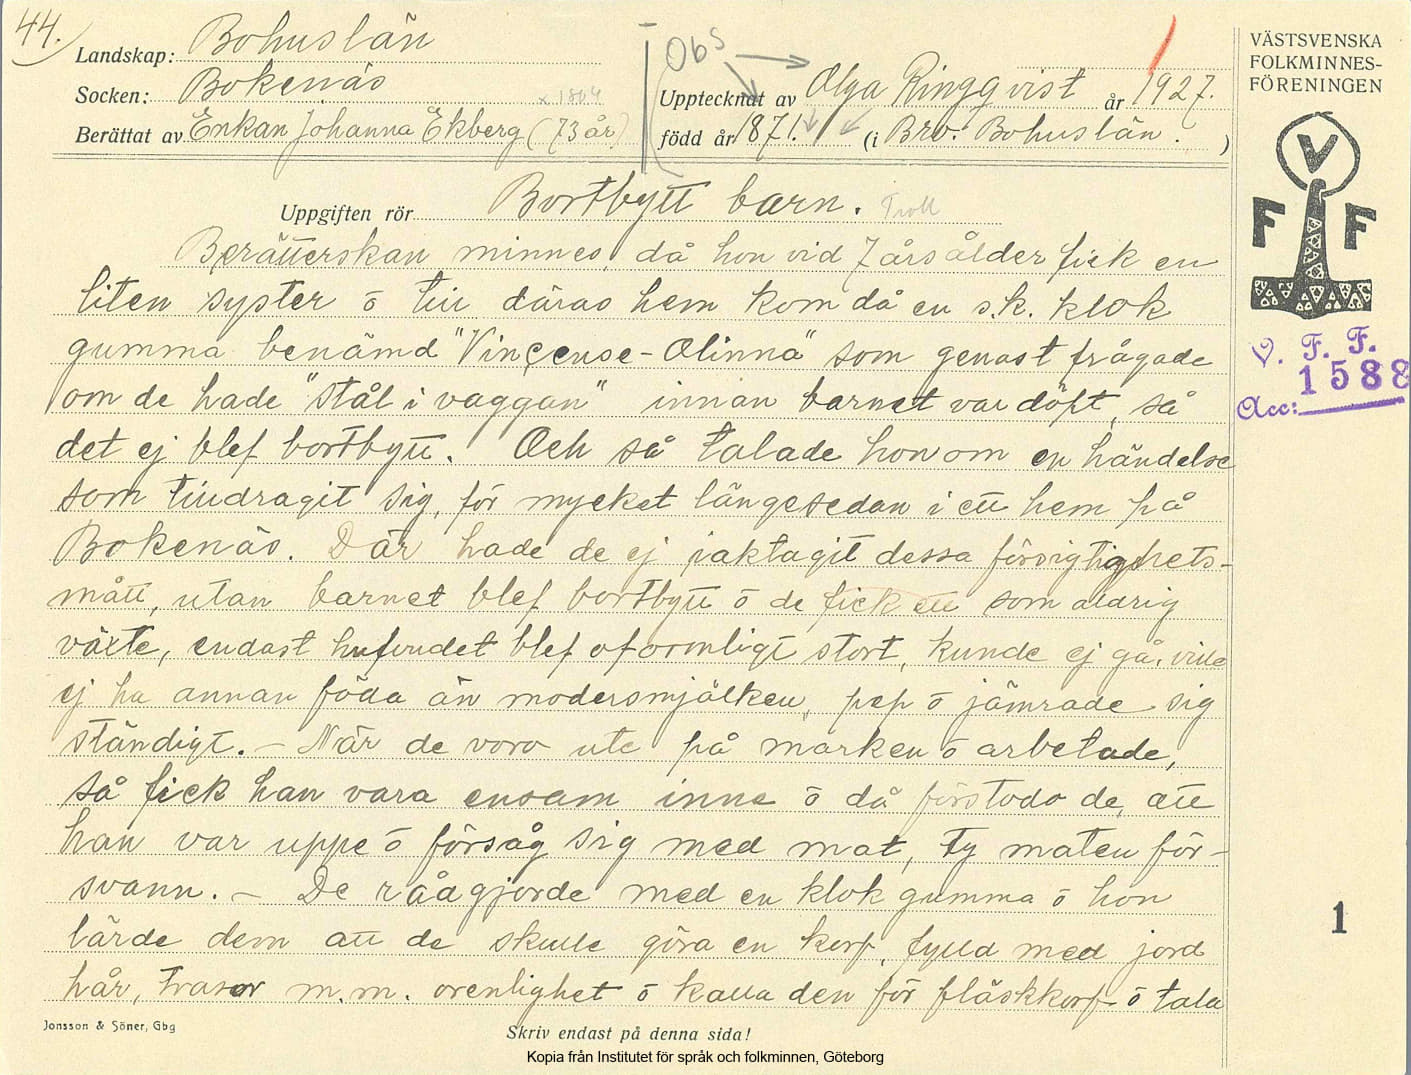 44.
Landskap: Bohuslän
Socken: Bokenäs
Berättat av Enkan Johanna Ekberg (73 år)
x 1864
Obs
Upptecknat av Olga Ringqvist år 1927.
född år 1871. (i Bro. Bohuslän. )
VÄSTSVENSKA
FOLKMINNES-
FÖRENINGEN
V
F F
V. F. F.
1588
Acc:
Uppgiften rör Bortbytt barn. Troll
Berätterskan minnes, då hon vid 7 års ålder fick en
liten syster o till däras hem kom då en s.k. klok
gumma benämd "Vincense-Olinna" som genast frågade
om de hade "stål i vaggan" innan barnet var döpt, så
det ej blef bortbytt. Och så talade hon om en händelse
som tilldragit sig, för mycket längesedan i ett hem på
Bokenäs. Där hade de ej iaktagit dessa försigtighets-
mått, utan barnet blef bortbytt o de fick ett som aldrig
växte, endast hufvudet blef oformligt stort, kunde ej gå, ville
ej ha annan föda än modersmjölken, pep o jämrade sig
ständigt. - När de voro ute på marken o arbetade,
så fick han vara ensam inne o då förstodo de, att
han var uppe o försåg sig med mat, ty maten för-
svann. - De rådgjorde med en klok gumma o hon
lärde dem att de skulle göra en korf, fylld med jord
hår, trasor m.m. orenlighet o kalla den för fläskkorf o tala
1
Jonsson & Söner, Gbg
Skriv endast på denna sida!
Kopia från Institutet för språk och folkminnen, Göteborg